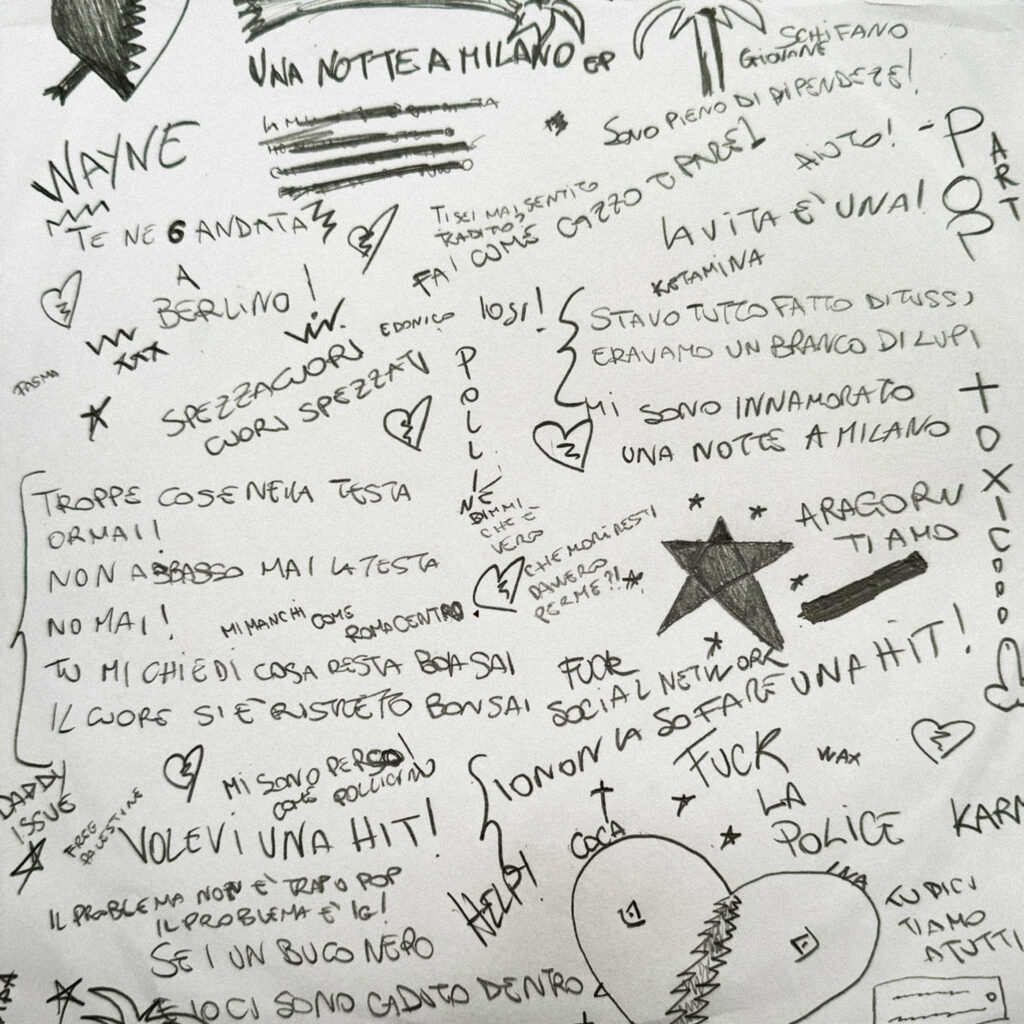 UNA NOTTE A MILANO EP
SCHIFANO
GIOVANE
SONO PIENO DI DIPENDEZE!
AIUTO!
- POP
ART
WAYNE
TE NE 6 ANDATA
A
BERLINO!
TI SEI MAI SENTITO
TRADITO?
FAI COME CAZZO TI PARE!
LA VITA È UNA!
KETAMINA
EDONICO
LOSI!
STAVO TUTTO FATTO DI TUSSI
ERAVAMO UN BRANCO DI LUPI
MI SONO INNAMORATO
UNA NOTTE A MILANO
XXX
TASMA
SPEZZACUORI
CUORI SPEZZATI
POLLINE
TOXIC
TROPPE COSE NELLA TESTA
ORMAI!
NON ABBASSO MAI LA TESTA
NO MAI!
MI MANCHI COME
ROMA CENTRO
DIMMI
CHE È
VERO
CHE MORIRESTI
DAVVERO
PER ME?!
ARAGORN
TI AMO
TU MI CHIEDI COSA RESTA BOH SAI
IL CUORE SI È RISTRETO BONSAI
FUCK
SOCIAL NETWORK
IO NON LA SO FARE UNA HIT!
MI SONO PERSO!
COME POLLICINO
FUCK
LA
POLICE
WAX
DADDY
ISSUE
FREE
PALESTINE
VOLEVI UNA HIT!
COCA
HELP!
IL PROBLEMA NON È TRAP O POP
IL PROBLEMA È IG!
SEI UN BUCO NERO
E IO CI SONO CADUTO DENTRO
TU DICI
TI AMO
A TUTTI